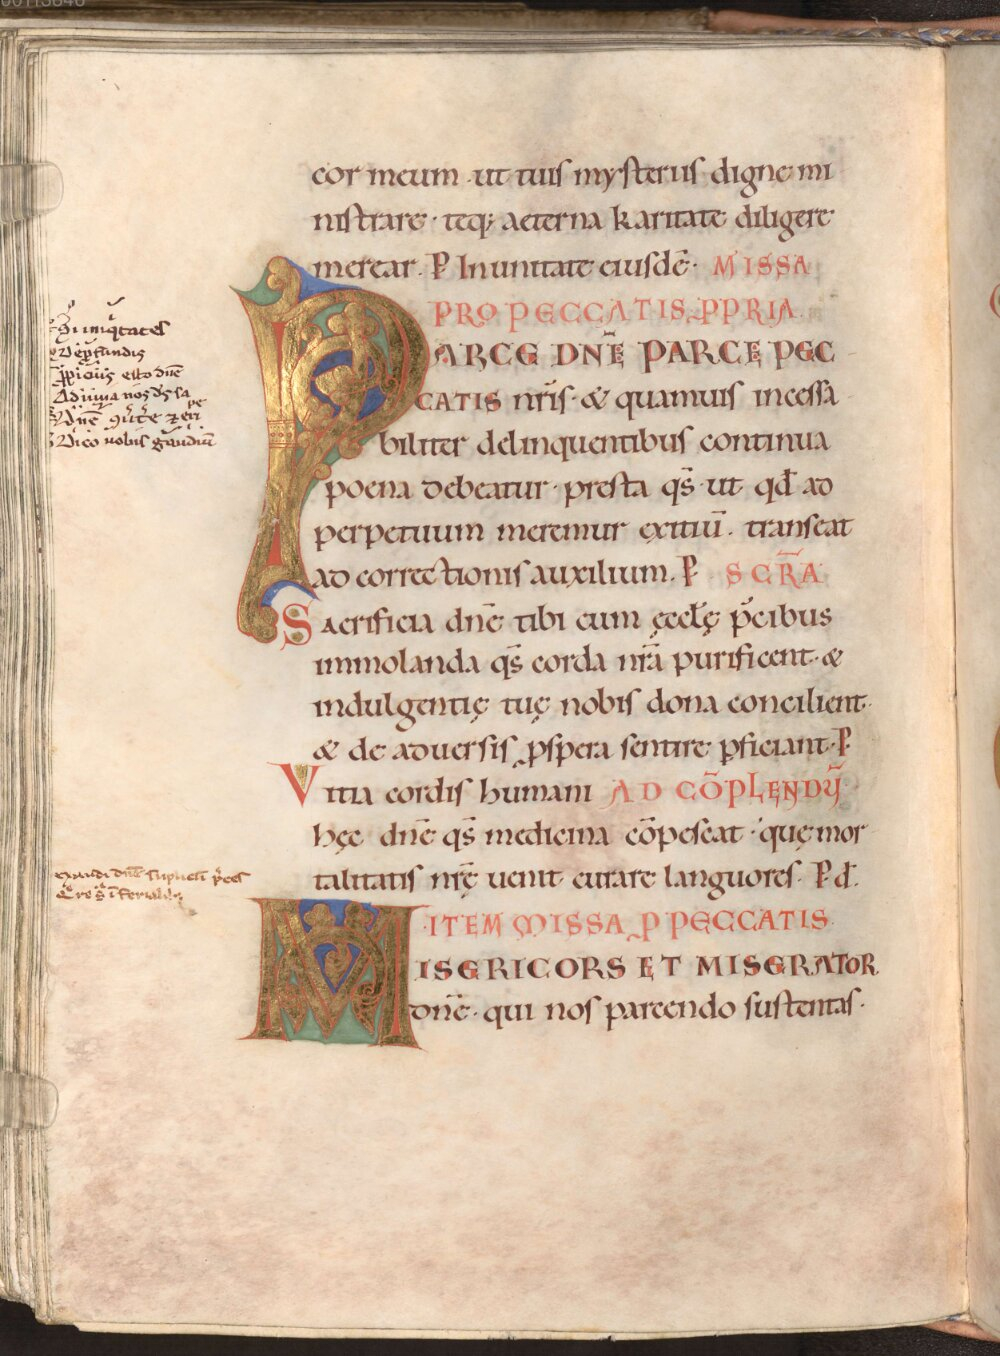 cor meum ut tuis mysteriis digne mi
nistrare · teq; aeterna karitate diligere
merear. P In unitate eiusdē · MISSA
PRO PECCATIS PPRIA
PARCE DNĒ PARCE PEC
CATIS nr̄is · & quamuis incessa
biliter delinquentibus continua
poena debeatur · presta qs̄ · ut qđ ad
perpetuum meremur exitiū · transeat
ad correctionis auxilium. P SCRA
Sacrificia dnē tibi cum ęccłę p̄cibus
immolanda qs̄ corda nr̄a purificent · &
indulgentię tuę nobis dona concilient ·
& de aduersis ꝓspera sentire ꝑficiant · P
Vitia cordis humani AD CŌPLENDŪ
hęc dnē qs̄ medicina cōpescat · quę mor
talitatis nr̄ę uenit curare languores · P d.
ITEM MISSA P PECCATIS
MISERICORS ET MISERATOR
dnē · qui nos parcendo sustentas ·
Si iniqtates
De ꝓfundis
Ꝓpicius esto dnē
Adiuua nos ds sa
Dico uobis gaudiū
exaudi dnē supplicū p̄ces